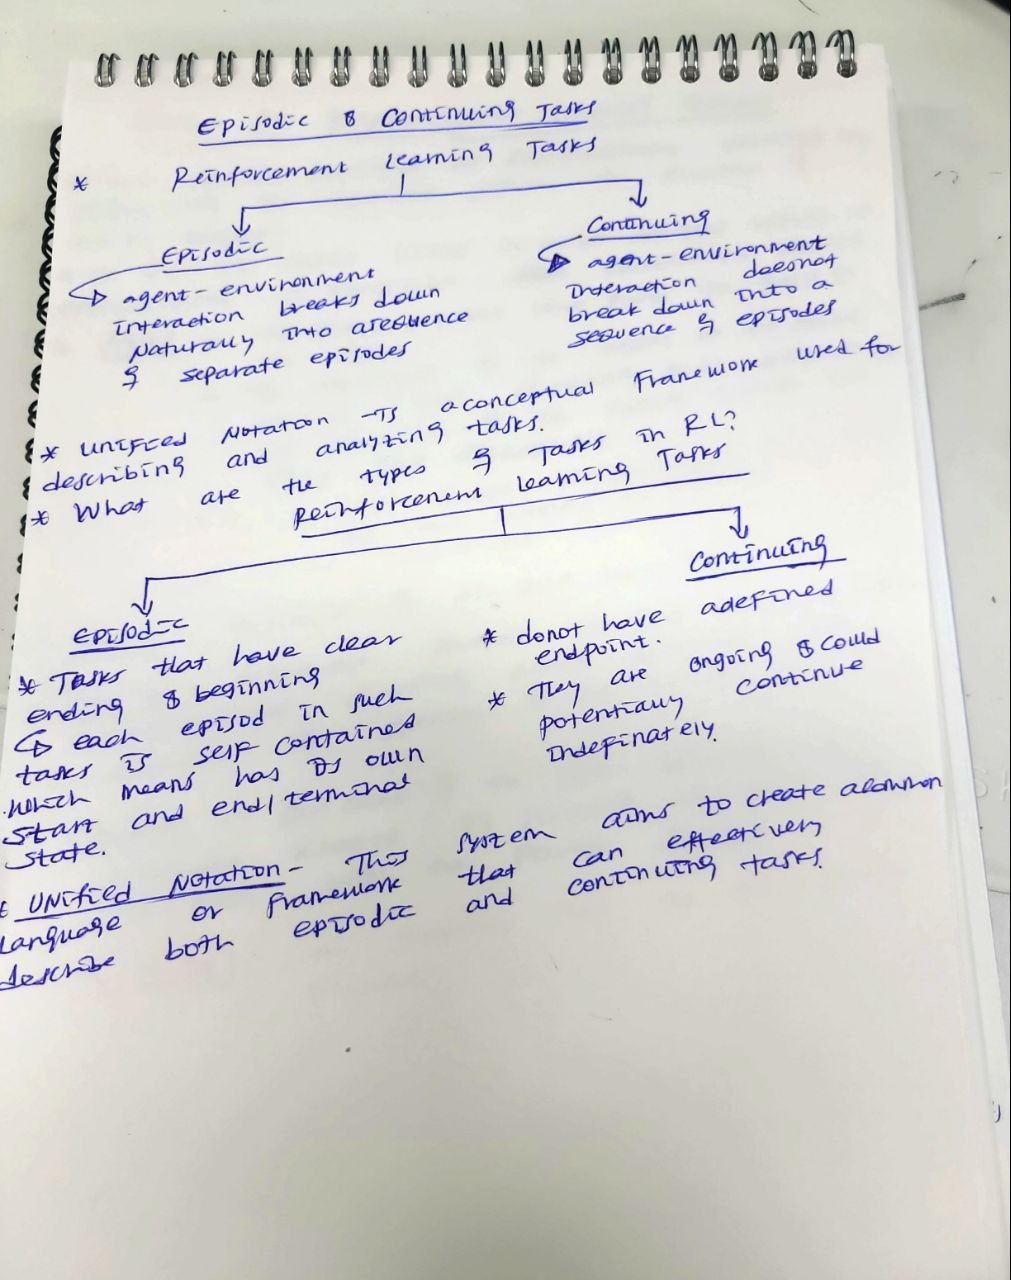 Episodic & Continuing Tasks
* Reinforcement Learning Tasks
Episodic
agent-environment
interaction breaks down
Naturally into a sequence
of separate episodes
Continuing
agent-environment
Interaction doesnot
break down into a
sequence of episodes
* UNIFIED Notation - Is a conceptual Framework used for
describing and analyzing tasks.
* What are the types of Tasks in RL?
Reinforcement Learning Tasks
Episodic
* Tasks that have clear
ending & beginning
each episod in such
tasks is self contained
which means has its own
start and end/terminal
state.
Continuing
* donot have a defined
endpoint.
* They are ongoing & could
potentially continue
indefinately.
* UNified Notation - This system aims to create a common
Language or Framework that can effectively
describe both episodic and continuing tasks.